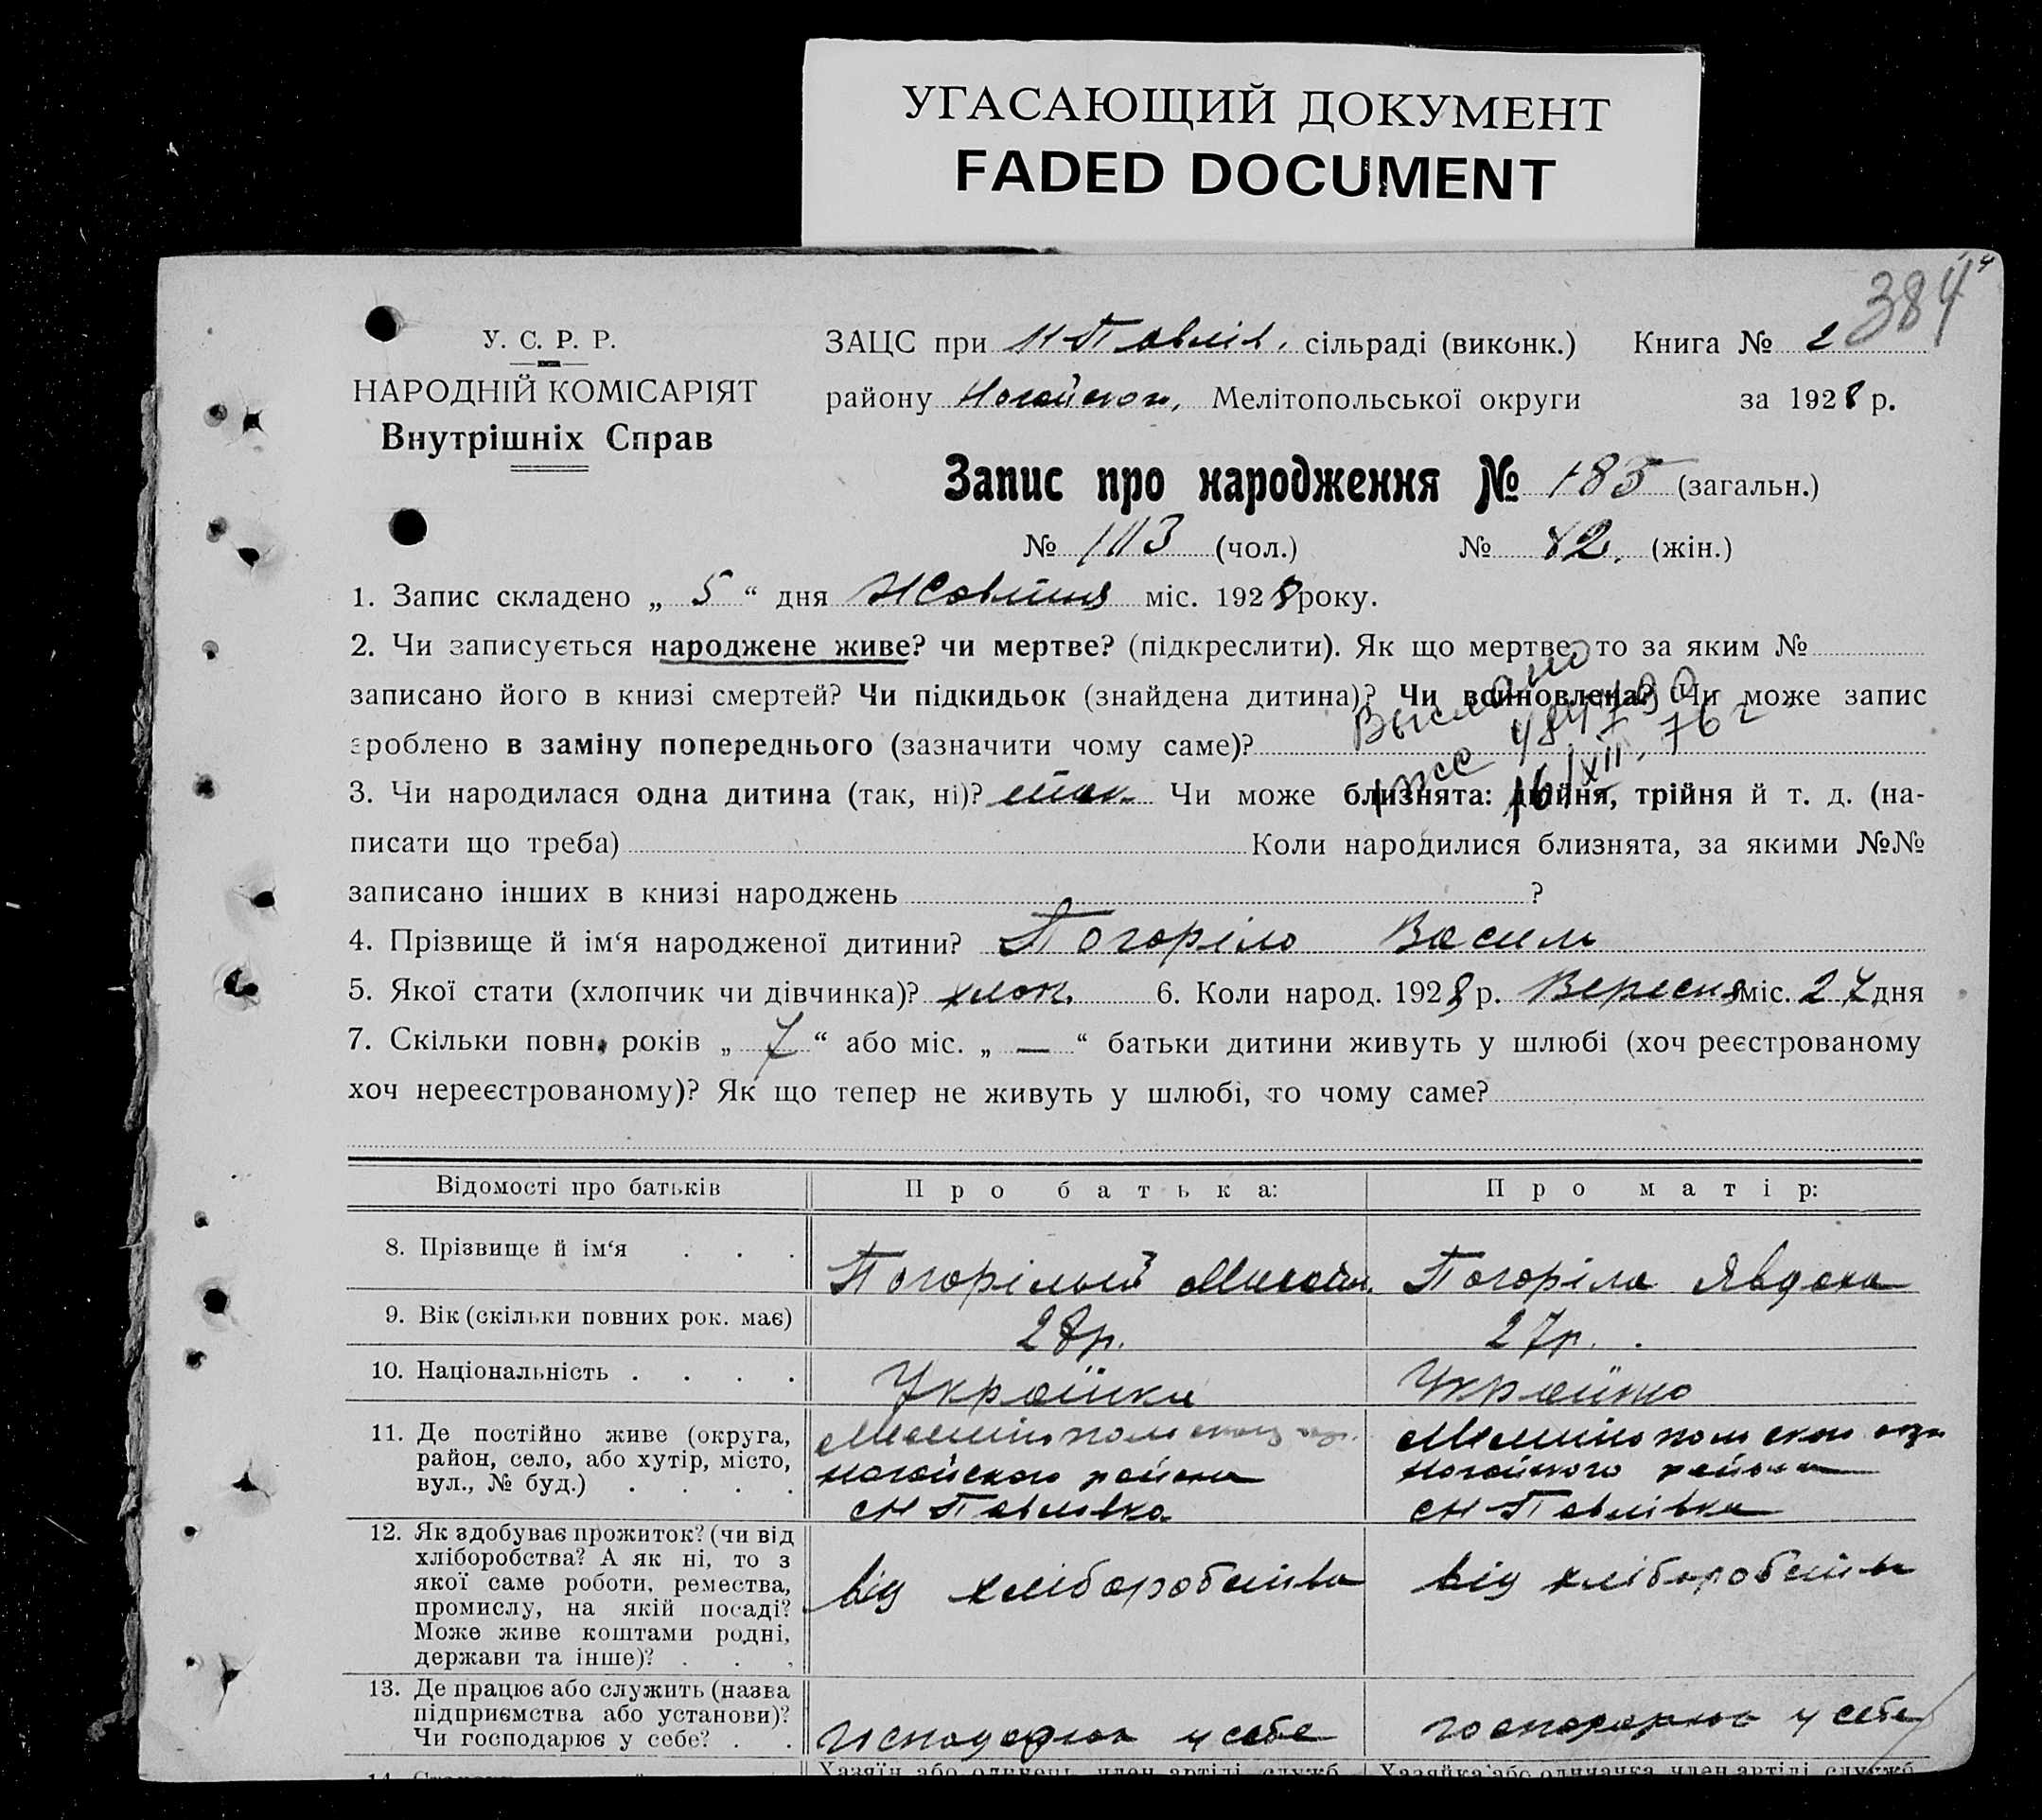 УГАСАЮЩИЙ ДОКУМЕНТ
FADED DOCUMENT
384
У. С. Р. Р.
НАРОДНІЙ КОМІСАРІЯТ
Внутрішніх Справ
ЗАЦС при Н Павлів. сільраді (виконк.) Книга № 2
району Ногайськ. Мелітопольської округи за 1928 р.
Запис про народження № 185 (загальн.)
№ 103 (чол.) № 82. (жін.)
1. Запис складено „ 5 “ дня Жовтня міс. 1928 року.
2. Чи записується народжене живе? чи мертве? (підкреслити). Як що мертве, то за яким №
записано його в книзі смертей? Чи підкидьок (знайдена дитина)? Чи всиновлена? Чи може запис
зроблено в заміну попереднього (зазначити чому саме)?
Выслано
16/XII. 76 г
3. Чи народилася одна дитина (так, ні)? так. Чи може близнята: двійня, трійня й т. д. (на-
писати що треба) Коли народилися близнята, за якими №№
записано інших в книзі народжень ?
4. Прізвище й ім‘я народженої дитини? Погоріло Василь
5. Якої стати (хлопчик чи дівчинка)? хлоп. 6. Коли народ. 1928 р. Вересня міс. 27 дня
7. Скільки повн. років „ 7 “ або міс. „ — “ батьки дитини живуть у шлюбі (хоч реєстрованому
хоч нереєстрованому)? Як що тепер не живуть у шлюбі, то чому саме?
Відомості про батьків Про батька: Про матір:
8. Прізвище й ім‘я . . . Погорілый Погоріла Явдоха
9. Вік (скільки повних рок. має) 28р. 27р.
10. Національність . . . .
11. Де постійно живе (округа, Мелітопольскої окр. Мелітопольскої окр
район, село, або хутір, місто, Ногайского района Ногайского района
вул., № буд.) . . . . с Н Павлівка с Н Павлівка
12. Як здобуває прожиток? (чи від
хліборобства? А як ні, то з
якої саме роботи, ремества, від хліборобства від хліборобства
промислу, на якій посаді?
Може живе коштами родні,
держави та інше)? . . .
13. Де працює або служить (назва
підприємства або установи)?
Чи господарює у себе? . . господарює у себе господарює у себе
Хазяїн або одинець, член артілі, служб. Хазяйка або одиначка, член артілі, служб.